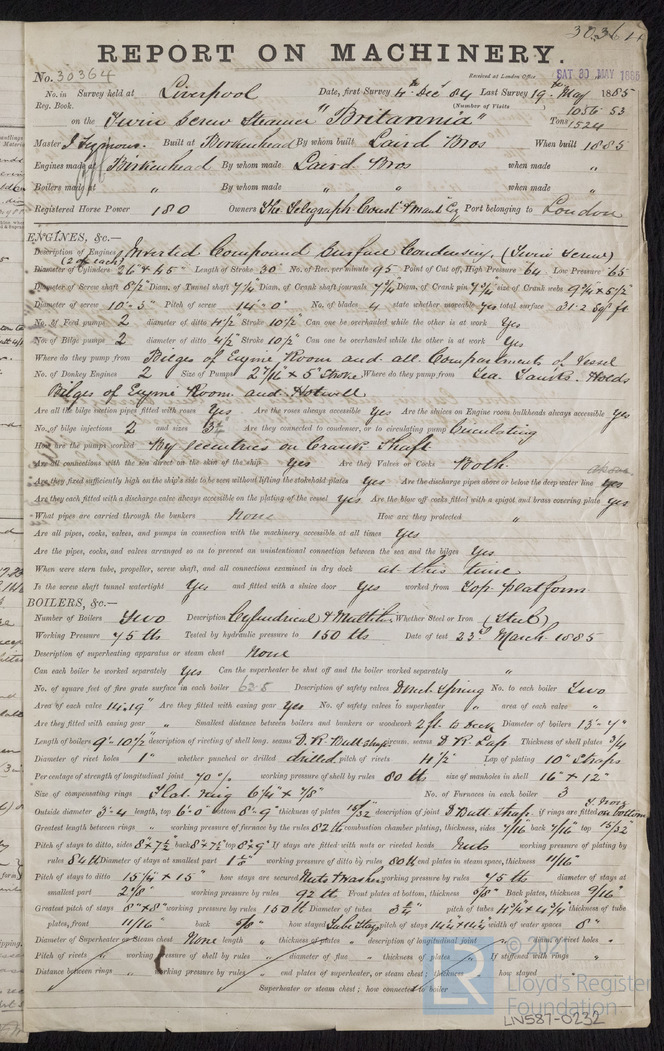 30364
REPORT ON MACHINERY.
No. 30364 Received at London Office SAT 30 MAY 1885
No. in Survey held at Liverpool Date, first Survey 4th Decr 84 Last Survey 19th May 1885
Reg. Book. (Number of Visits
on the Twin Screw Steamer "Britannia" Tons 1056.53 1524
Master J Seymour. Built at Birkenhead By whom built Laird Bros When built 1885
Engines made at Birkenhead By whom made Laird Bros when made "
Boilers made at " By whom made " " when made "
Registered Horse Power 180 Owners The Telegraph Const & Maint Coy Port belonging to London
ENGINES, &c.—
Description of Engines Inverted Compound Surface Condensing. (Twin Screw)
(2 of each)
Diameter of Cylinders 26" & 45" Length of Stroke 30" No. of Rev. per minute 95 Point of Cut off, High Pressure .64 Low Pressure .65
Diameter of Screw shaft 8 1/2 Diam. of Tunnel shaft 7 1/4 Diam. of Crank shaft journals 7 3/4 Diam. of Crank pin 7 3/4 size of Crank webs 9 3/4 x 5 1/2
Diameter of screw 10'-3" Pitch of screw 14'-0" No. of blades 4 state whether moveable yes total surface 31.2 Sq. ft
No. of Feed pumps 2 diameter of ditto 4 1/2" Stroke 10 1/2" Can one be overhauled while the other is at work Yes
No. of Bilge pumps 2 diameter of ditto 4 1/2" Stroke 10 1/2" Can one be overhauled while the other is at work Yes
Where do they pump from Bilges of Engine Room and all Compartments of Vessel
No. of Donkey Engines 2 Size of Pumps & 5" Stroke Where do they pump from Sea. Tanks. Holds
Bilges of Engine Room and Hotwell
Are all the bilge suction pipes fitted with roses Yes Are the roses always accessible Yes Are the sluices on Engine room bulkheads always accessible Yes
No. of bilge injections 2 and sizes Are they connected to condenser, or to circulating pump Circulating
How are the pumps worked By eccentrics on Crank Shaft
Are all connections with the sea direct on the skin of the ship Yes Are they Valves or Cocks Both.
Are they fixed sufficiently high on the ship's side to be seen without lifting the stokehold plates Yes Are the discharge pipes above or below the deep water line above
Are they each fitted with a discharge valve always accessible on the plating of the vessel Yes Are the blow off cocks fitted with a spigot and brass covering plate yes
What pipes are carried through the bunkers None How are they protected "
Are all pipes, cocks, valves, and pumps in connection with the machinery accessible at all times Yes
Are the pipes, cocks, and valves arranged so as to prevent an unintentional connection between the sea and the bilges Yes
When were stern tube, propeller, screw shaft, and all connections examined in dry dock at this time
Is the screw shaft tunnel watertight Yes and fitted with a sluice door Yes worked from Top platform
BOILERS, &c.—
Number of Boilers Two Description Cylindrical & Multitr. Whether Steel or Iron (Steel)
Working Pressure 75 lb Tested by hydraulic pressure to 150 lbs Date of test 23rd March 1885
Description of superheating apparatus or steam chest None
Can each boiler be worked separately Yes Can the superheater be shut off and the boiler worked separately "
No. of square feet of fire grate surface in each boiler 63.8 Description of safety valves Direct Spring No. to each boiler Two
Area of each valve 14.19 Are they fitted with easing gear Yes No. of safety valves to superheater " area of each valve "
Are they fitted with easing gear " Smallest distance between boilers and bunkers or woodwork 2 ft to Deck Diameter of boilers 13'-7"
Length of boilers 9'-10 1/2" description of riveting of shell long. seams D.R. Butt straps circum. seams D.R. Lap Thickness of shell plates 3/4
Diameter of rivet holes 1" whether punched or drilled drilled pitch of rivets 4 1/2 Lap of plating 10" Straps
Per centage of strength of longitudinal joint 70 % working pressure of shell by rules 80 lb size of manholes in shell 16" x 12"
Size of compensating rings Flat ring 6 1/2" x 7/8" No. of Furnaces in each boiler 3
Outside diameter 3'-4 length, top 6'-0" bottom 8'-9" thickness of plates 15/32 description of joint D Butt Strap if rings are fitted on bottom
Greatest length between rings " working pressure of furnace by the rules 82 lb combustion chamber plating, thickness, sides 7/16 back 7/16 top 15/32
Pitch of stays to ditto, sides 8 x 7 1/2 back 8 x 7 1/2 top 8 x 9" If stays are fitted with nuts or riveted heads Nuts working pressure of plating by
rules 84 lb Diameter of stays at smallest part working pressure of ditto by rules 80 lb end plates in steam space, thickness 11/16"
Pitch of stays to ditto 15 1/4 x 15" how stays are secured Nuts & washers working pressure by rules 75 lb diameter of stays at
smallest part 2 5/8" working pressure by rules 92 lb Front plates at bottom, thickness 5/8" Back plates, thickness 9/16"
Greatest pitch of stays 8" x 8" working pressure by rules 150 lb Diameter of tubes 3 1/4" pitch of tubes 4 3/4 x 4 3/4" thickness of tube
plates, front 11/16" back 5/8" how stayed Tube Stays pitch of stays width of water spaces 8"
Diameter of Superheater or Steam chest None length " thickness of plates " description of longitudinal joint " diam. of rivet holes "
Pitch of rivets " working pressure of shell by rules " diameter of flue " thickness of plates " If stiffened with rings "
Distance between rings " working pressure by rules " end plates of superheater, or steam chest; thickness " how stayed "
Superheater or steam chest; how connected to boiler
© 2021
LR
Lloyd's Register
Foundation
LN587-0232